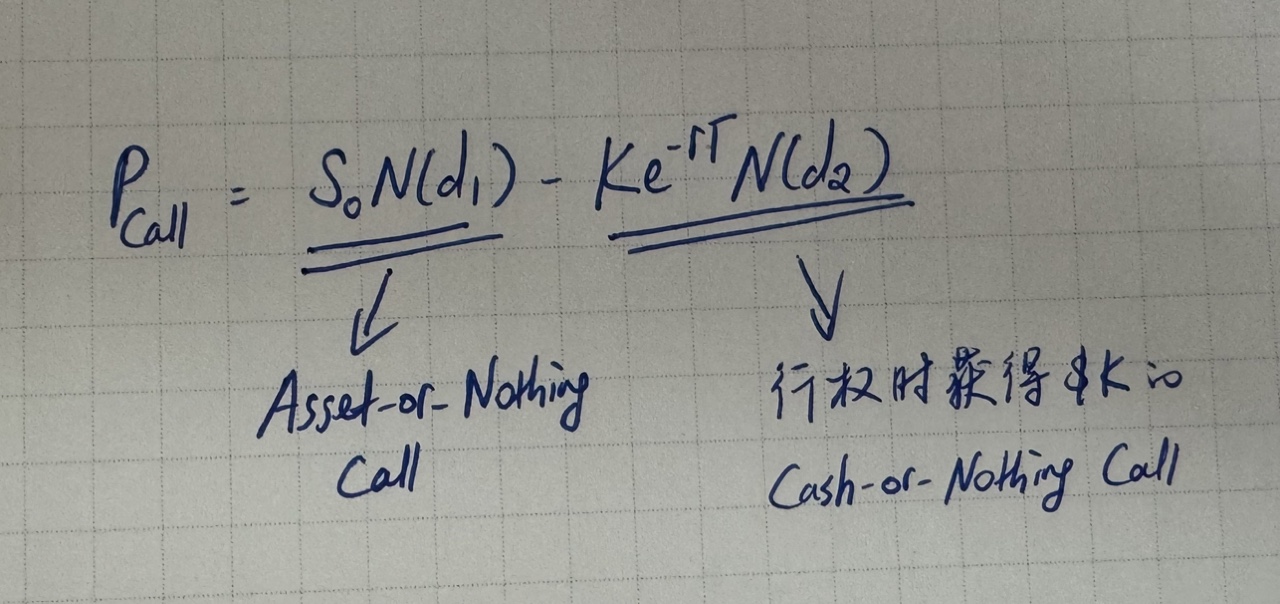 P_Call = S₀N(d₁) - Ke^{-rT} N(d₂)
Asset-or-Nothing
Call
行权时获得 $K 的
Cash-or-Nothing Call